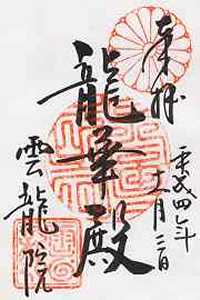 奉拝
平成四年
十一月二日
龍華殿
雲龍院